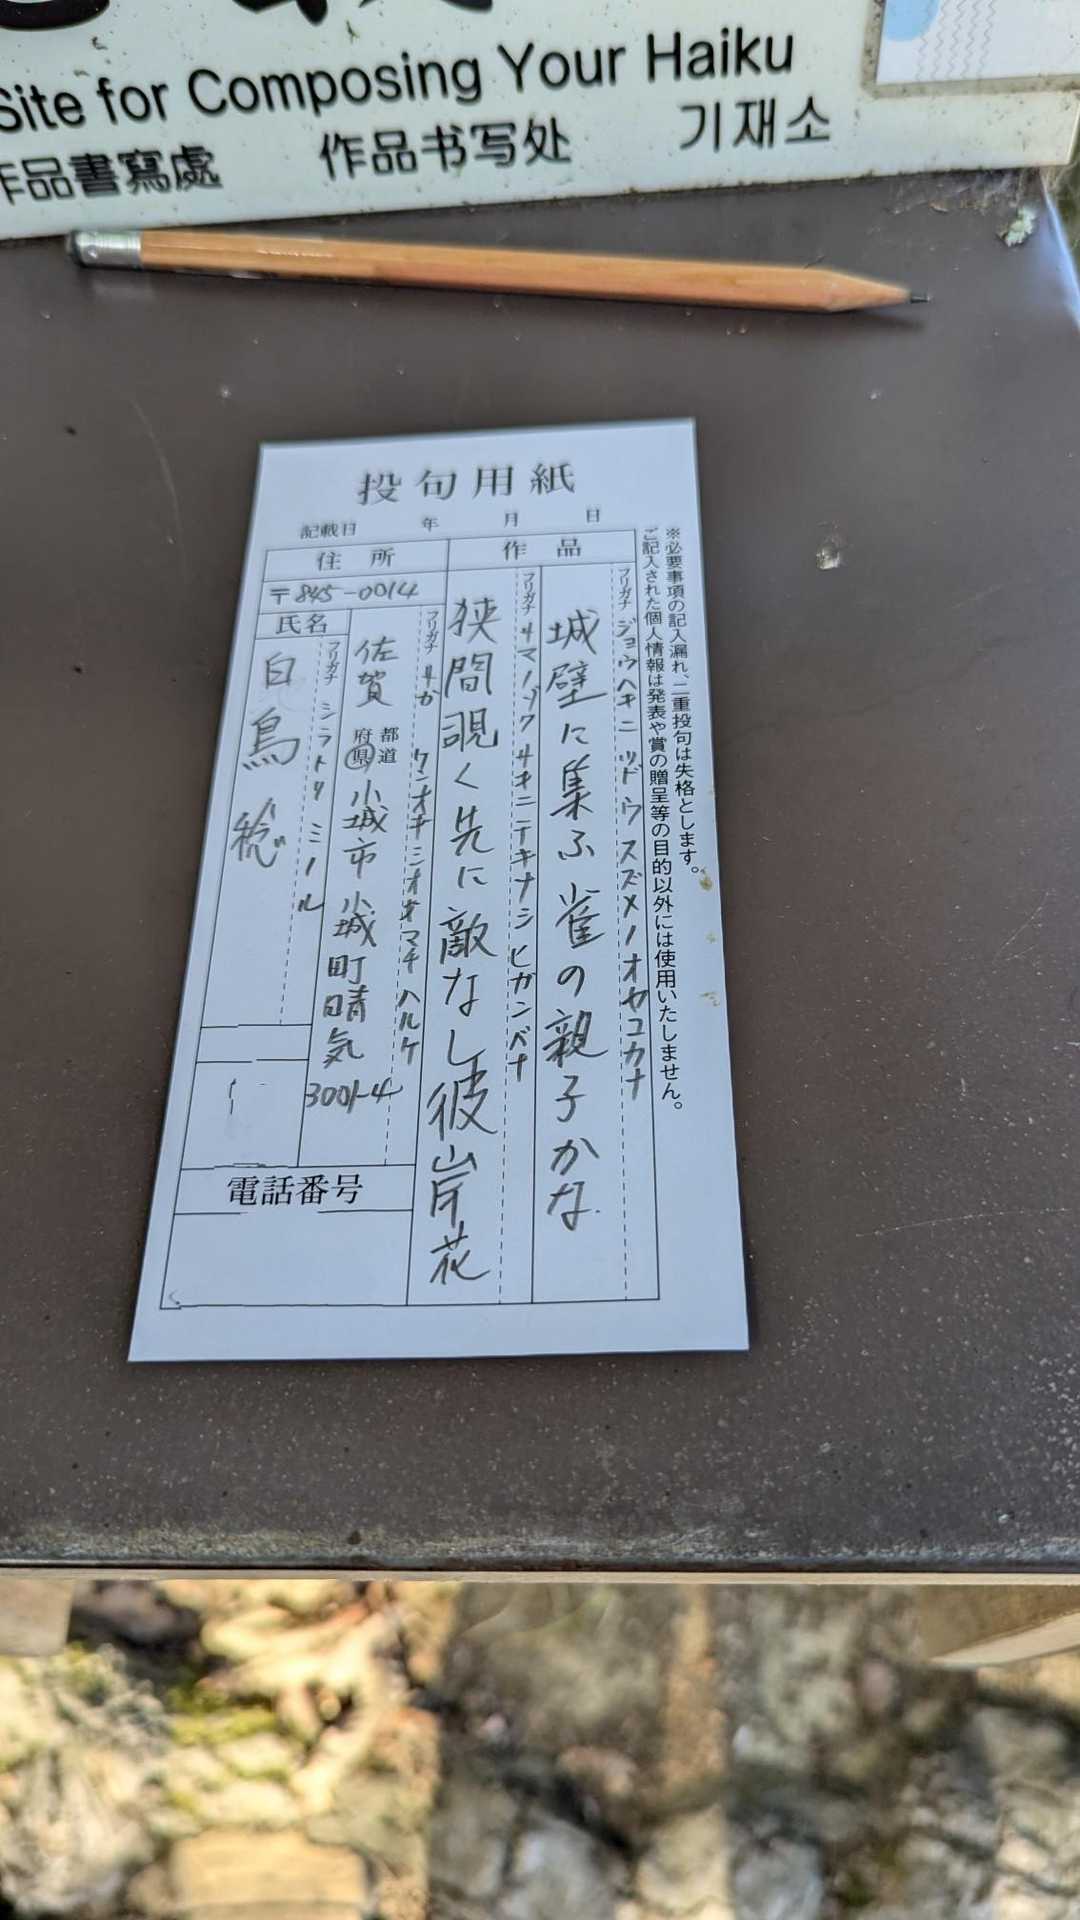 Site for Composing Your Haiku
作品書寫處 作品书写处 기재소
投句用紙
記載日 年 月 日
※必要事項の記入漏れ、二重投句は失格とします。
ご記入された個人情報は発表や賞の贈呈等の目的以外には使用いたしません。
作品
フリガナ ジョウヘキニ ツドウ スズメノ オヤコカナ
城壁に集ふ雀の親子かな
フリガナ サマノゾク サキニ テキナシ ヒガンバナ
狭間覗く先に敵なし彼岸花
住所
〒845-0014
フリガナ サガ ケンオギシオギマチ ハルケ
佐賀 都道府県 小城市小城町晴気
3001-4
氏名
フリガナ シラトリ ミノル
白鳥 稔
電話番号